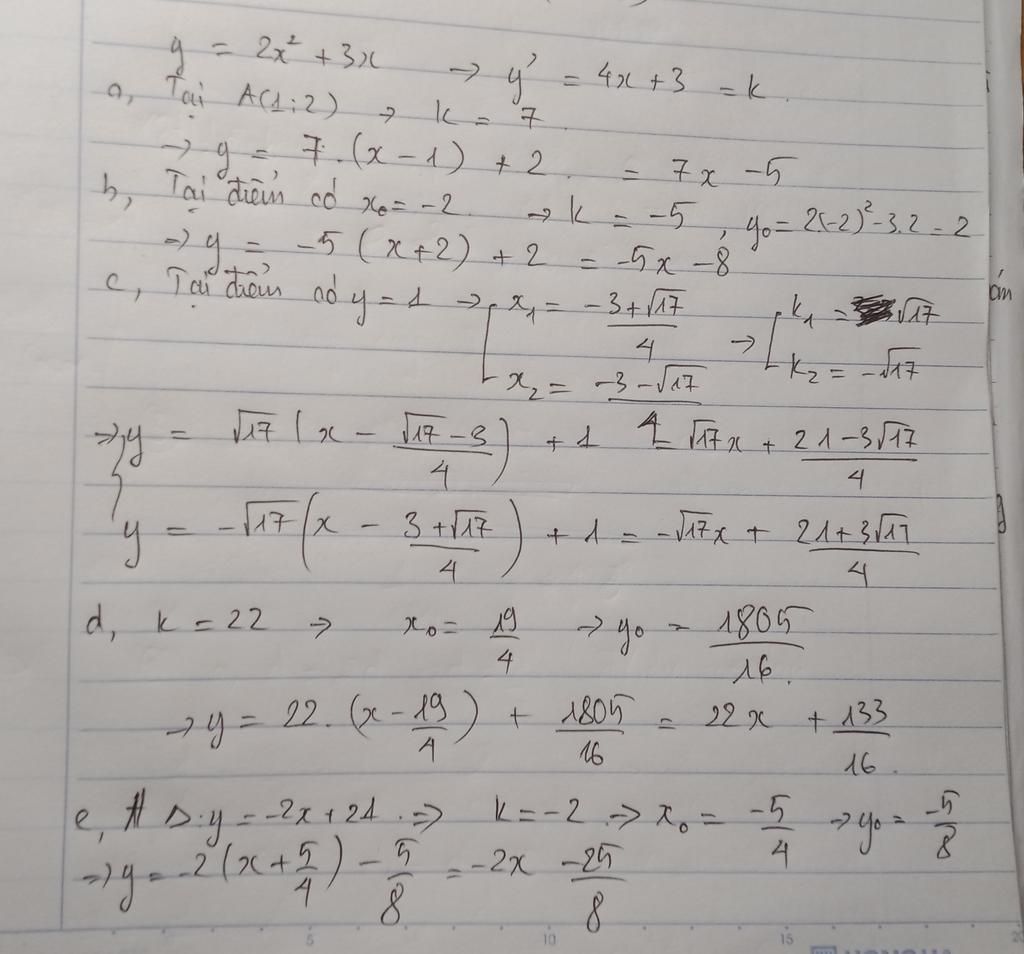 y = 2x² + 3x → y' = 4x + 3 = k.
a, Tại A(1;2) → k = 7.
→ y = 7.(x - 1) + 2. = 7x - 5
b, Tại điểm có x₀ = -2. → k = -5, y₀ = 2(-2)² - 3.2 = 2
→ y = -5 (x + 2) + 2 = -5x - 8
c, Tại điểm có y = 1 → [ x₁ = (-3 + √17)/4 → [ k₁ = √17
x₂ = (-3 - √17)/4 k₂ = -√17
→ { y = √17 (x - (√17 - 3)/4) + 1 = √17x + (21 - 3√17)/4
y = -√17 (x - (3 + √17)/4) + 1 = -√17x + (21 + 3√17)/4
d, k = 22 → x₀ = 19/4 → y₀ = 1805/16.
→ y = 22.(x - 19/4) + 1805/16 = 22x + 133/16.
e, // Δ: y = -2x + 21. ⇒ k = -2 → x₀ = -5/4 → y₀ = -5/8
⇒ y = -2(x + 5/4) - 5/8 = -2x - 25/8
5 10 15 20